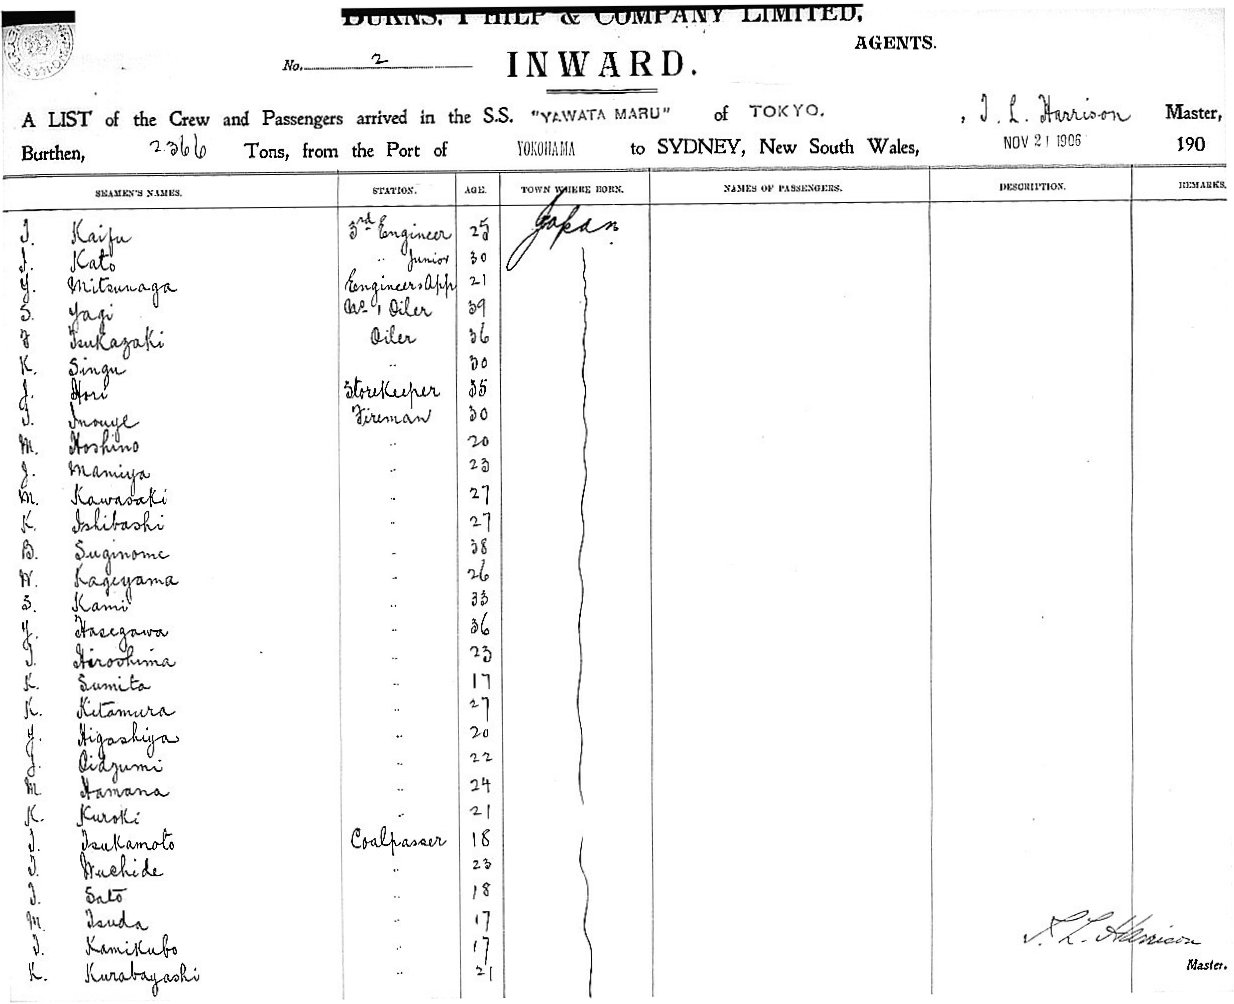 BURNS, PHILP & COMPANY LIMITED,
AGENTS.
No. 2
INWARD.
A LIST of the Crew and Passengers arrived in the S.S. "YAWATA MARU" of TOKYO. , T. L. Harrison Master,
Burthen, 2366 Tons, from the Port of YOKOHAMA to SYDNEY, New South Wales, NOV 21 1906 190
SEAMEN'S NAMES. STATION. AGE. TOWN WHERE BORN. NAMES OF PASSENGERS. DESCRIPTION. REMARKS.
T. Kaifu 3rd Engineer 25 Japan
T. Kato " Junior 30
Y. Mitsunaga Engineers App 21
S. Yagi No 1 Oiler 39
F Tsukazaki Oiler 36
K. Singu " 30
J. Hori Storekeeper 35
T. Inouye Fireman 30
M. Hoshino " 20
J. Mamiya " 23
M. Kawasaki " 27
K. Ishibashi " 27
B. Suginome " 38
W. Kageyama " 26
S. Kami " 33
Y. Hasegawa " 36
T. Hiroshima " 23
K. Sumita " 17
K. Kitamura " 27
Y. Higashiya " 20
J. Oidzumi " 22
M Hamana " 24
K. Kuroki " 21
T. Tsukamoto Coalpasser 18
T. Wuchide " 23
T. Sato " 18
M. Tsuda " 17
T. Kamikubo " 17
K. Kurabayashi " 21
T. L. Harrison
Master.